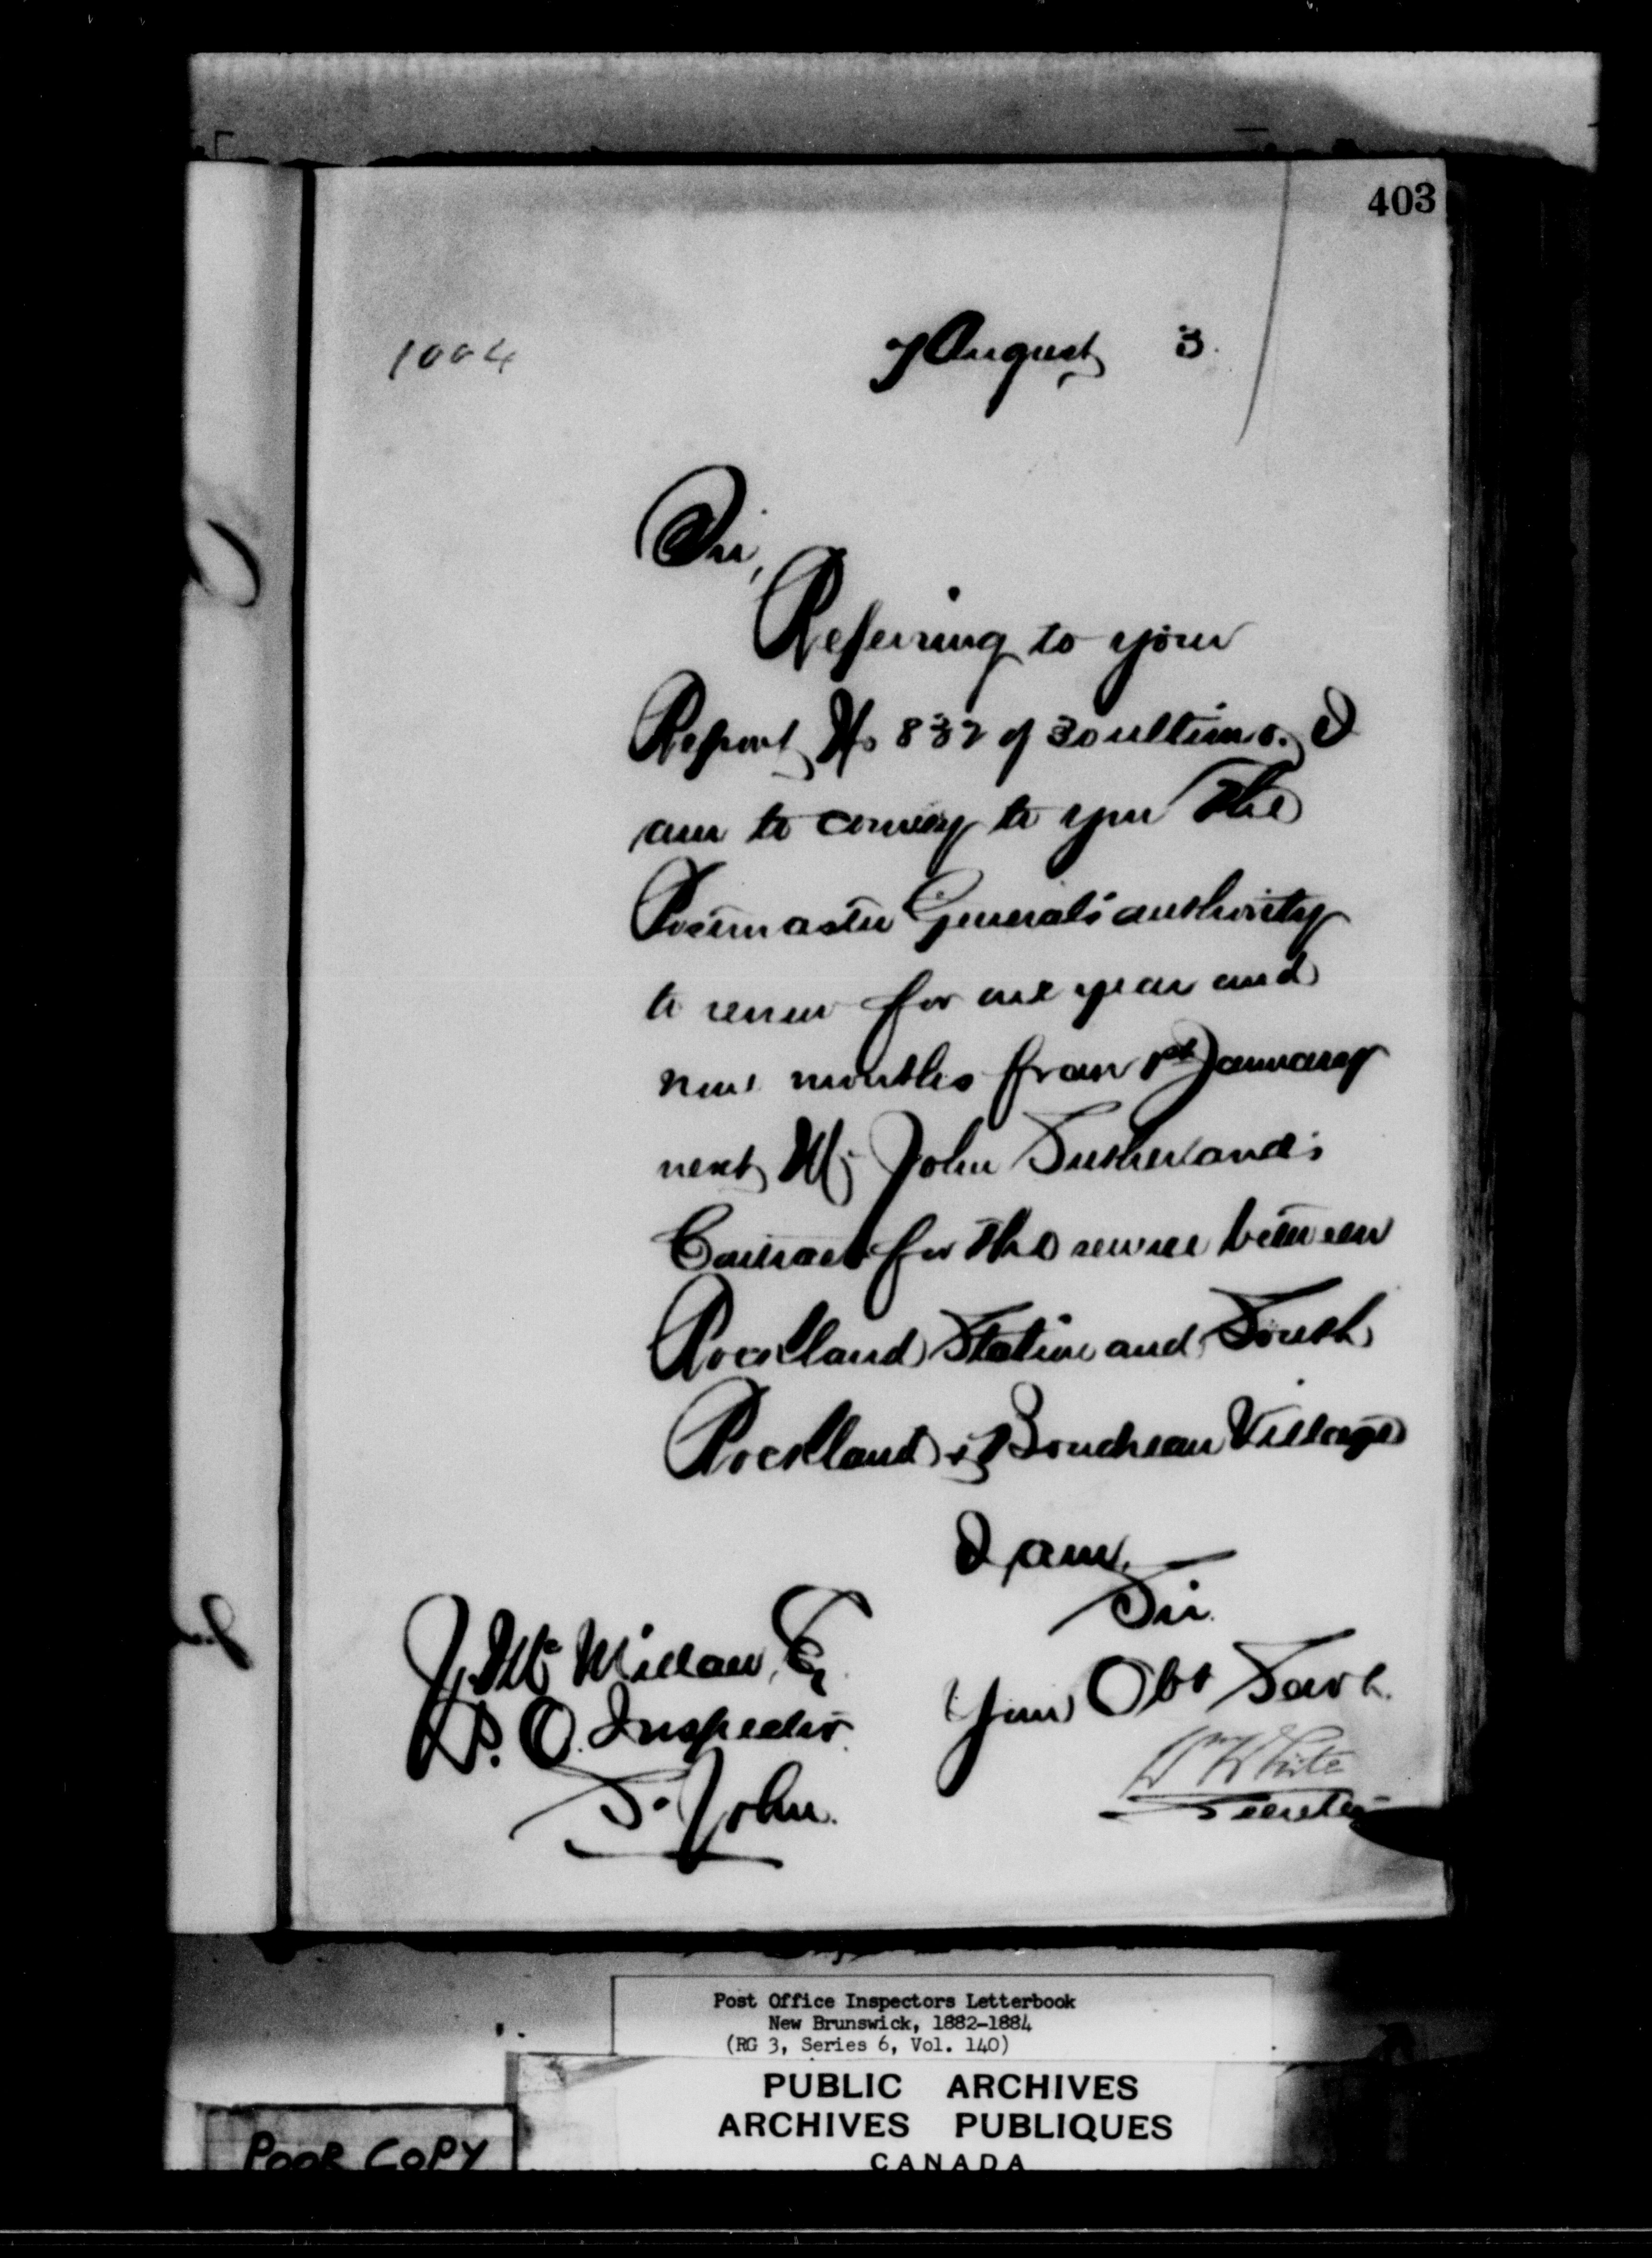 403
1004 7 August 3.
Sir,
Referring to your
Report No 837 of 30 ultimo. I
am to convey to you the
Postmaster General's authority
to renew for one year and
nine months from 1st January
next Mr John Sutherland's
Contract for the service between
Rockland Station and South
Rockland & Boudreau Village
I am,
Sir.
Your Obt Servt.
Wm White
Secretary
J. McMillan, Esq
P. O. Inspector.
St John.
Post Office Inspectors Letterbook
New Brunswick, 1882-1884
(RG 3, Series 6, Vol. 140)
PUBLIC ARCHIVES
ARCHIVES PUBLIQUES
CANADA
POOR COPY